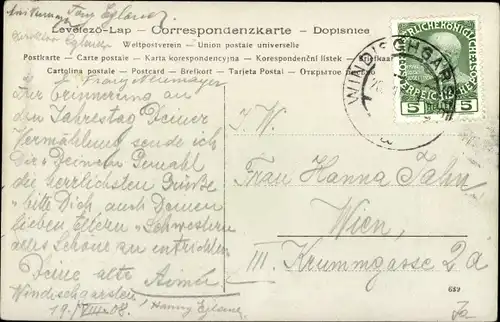 Levelező-Lap – Correspondenzkarte – Dopisnice
Weltpostverein – Union postale universelle
Postkarte – Carte postale – Karta korespondencyjna – Korespondenční lístek –
Cartolina postale – Postcard – Brefkort – Tarjeta Postal – Открытое
WINDISCHGARSTEN
5 5
Zur Erinnerung an
den Jahrestag Deiner
Vermählung sende ich
Dir & Deinem Gemahl
die herzlichsten Grüße
bitte Dich auch Deinen
lieben Eltern & Schwestern
alles Schöne zu entrichten
Deine alte
Windischgarsten
19./VIII. 08.
I. W.
Frau Hanna Jahn
Wien,
III. Krummgasse 2a
659